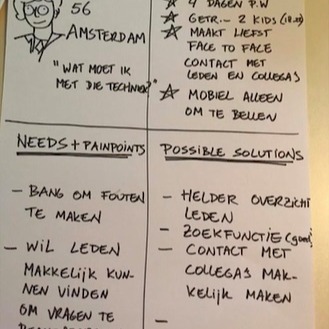 56
AMSTERDAM
"WAT MOET IK
MET DIE TECHNIEK?"
4 DAGEN P.W
GETR. - 2 KIDS
MAAKT LIEFST
FACE TO FACE
CONTACT MET
LEDEN EN COLLEGAS
MOBIEL ALLEEN
OM TE BELLEN
NEEDS + PAINPOINTS
- BANG OM FOUTEN
TE MAKEN
- WIL LEDEN
MAKKELIJK KUN-
NEN VINDEN
OM VRAGEN TE
POSSIBLE SOLUTIONS
- HELDER OVERZICHT
LEDEN
- ZOEKFUNCTIE (goed)
- CONTACT MET
COLLEGAS MAK-
KELIJK MAKEN
-